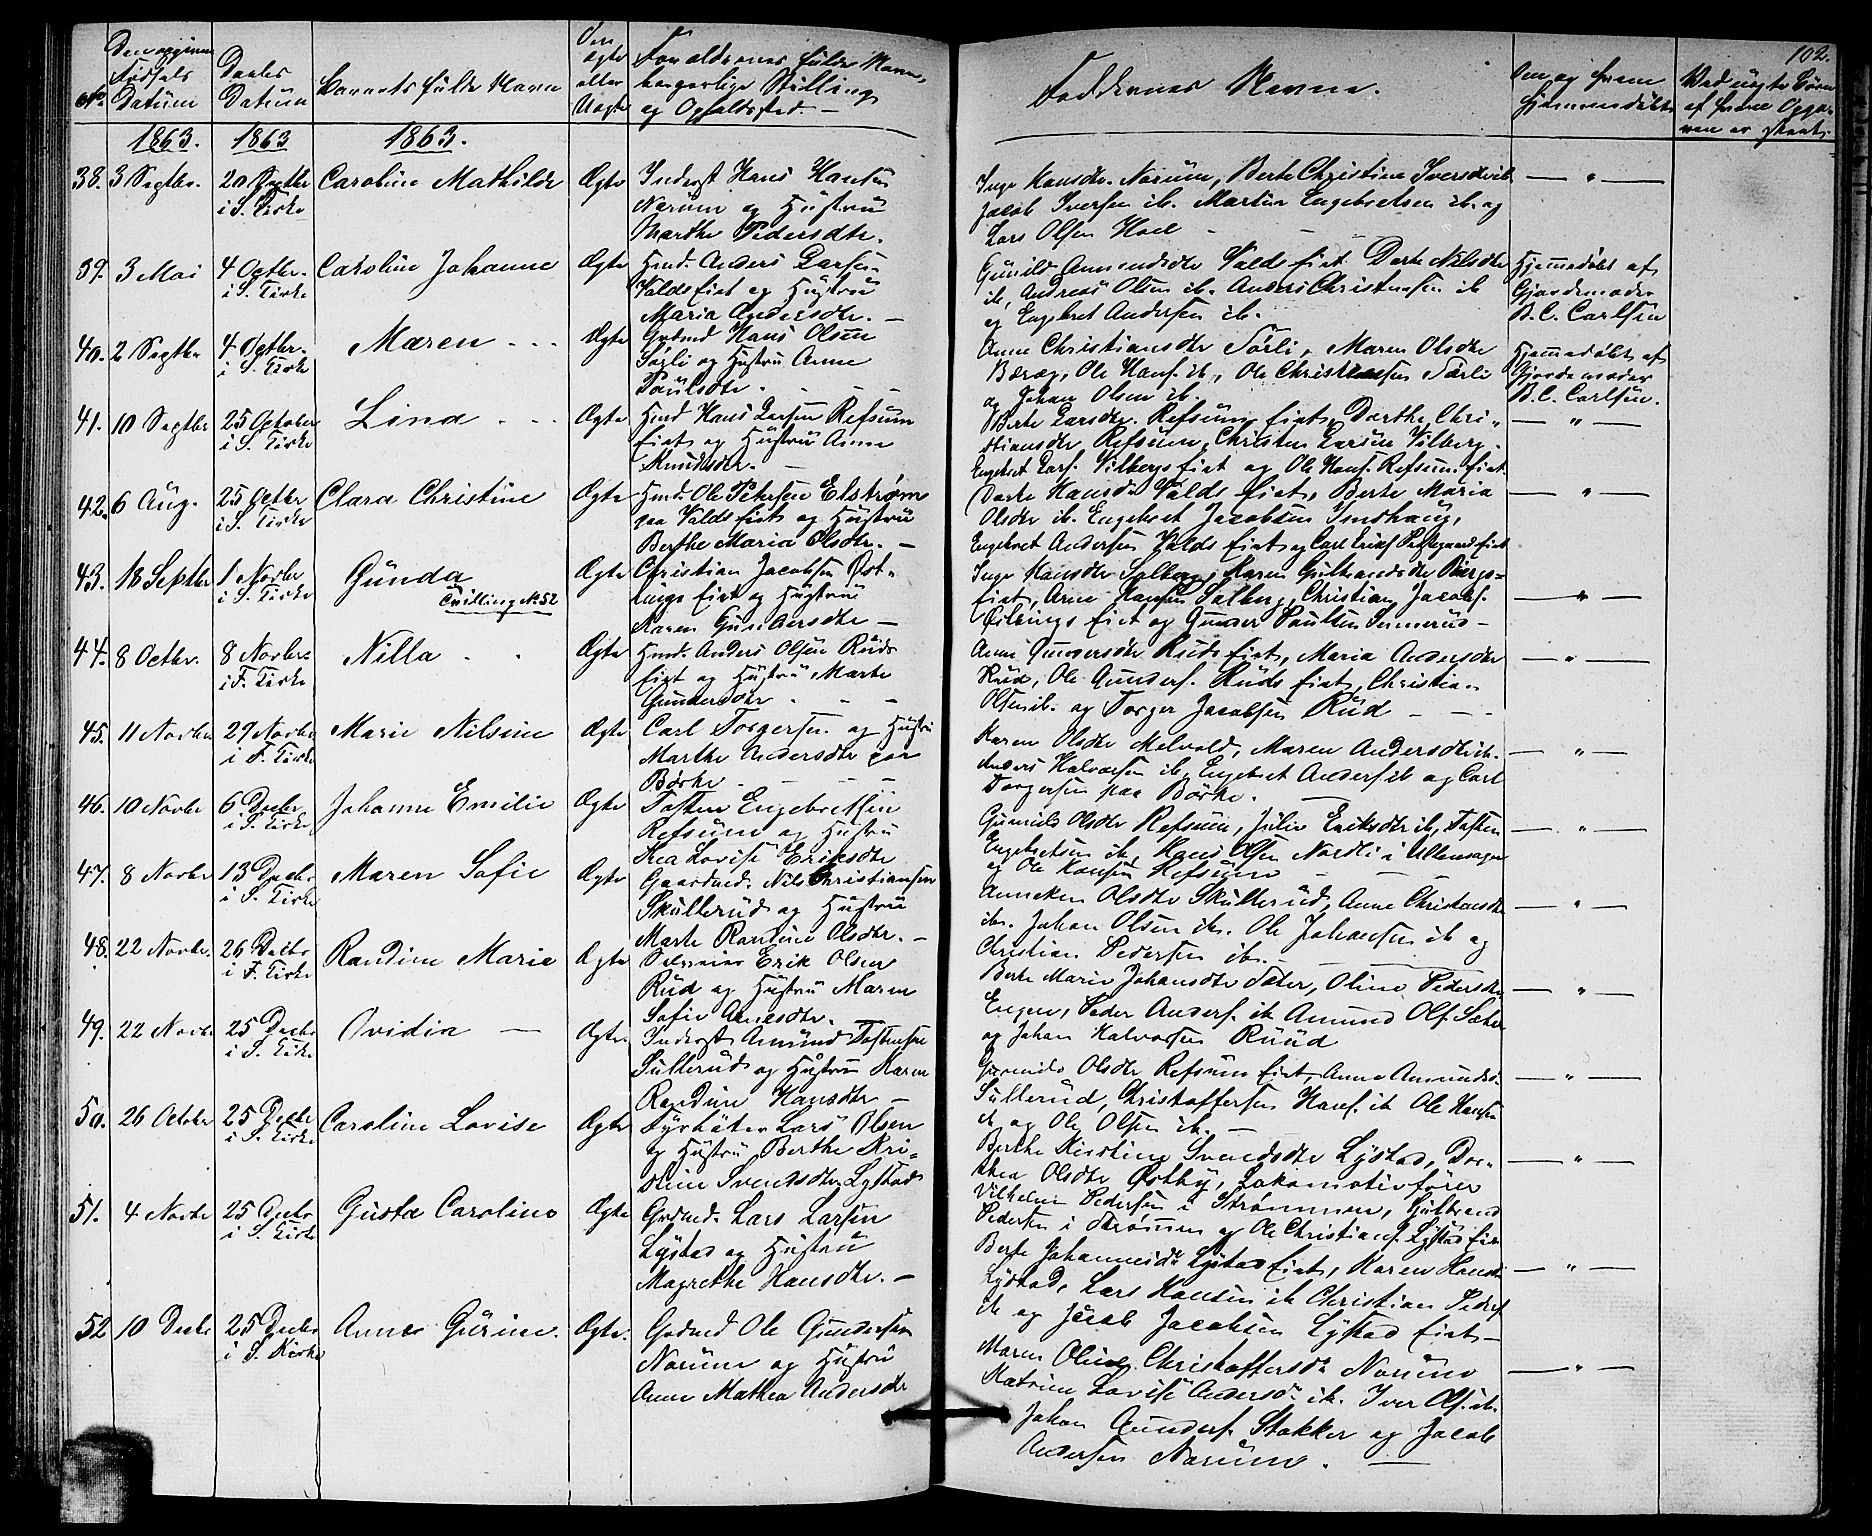 102.
No Den opgivne Fødsels Datum
Daabs Datum
Barnets fulde Navn
Om ægte eller Uægte
Forældrenes fulde Navn,
borgerlige Stilling
og Opholdssted. —
Faddernes Navne.
Om og hvem hjemmedøbt
Ved uægte Børn
af hvem Opga-
ven er skeet.
1863. 1863 1863.
38. 3 Septbr. 20 Septbr i S. Kirke Caroline Mathilde Ægte
Inderst Hans Hansen
Norum og Hustru
Marthe Pedersdtr.
Inge Hansdtr. Norum, Berte Christine Iversdtr ib
Jacob Iversen ib. Martin Engebretsen ib. og
Lars Olsen Hoel
— " —
39. 3 Mai 4 Octbr. i S. Kirke Caroline Johanne Ægte
Hmd. Anders Larsen
Valds Eiet og Hustru
Maria Andersdtr. —
Gunild Amundsdtr Valds Eiet Dorte Nilsdtr
ib, Andreas Olsen ib. Anders Christensen ib
og Engebret Andersen ib.
Hjemmedøbt af
Gjordemoder
B. C. Carlsen
40. 2 Septbr 4 Octbr. i S. Kirke Maren Ægte
Grdmd Hans Olsen
Sørli og Hustru Anne
Paulsdtr
Anne Christiansdtr Sørli, Maren Olsdtr
Ole Hans. ib, Ole Christensen Sørli
og Johan Olsen ib.
Hjemmedøbt af
Gjordemoder
B. C. Carlsen.
41. 10 Septbr 25 October i S. Kirke Lina Ægte
Hmd Hans Larsen Refsum
Eiet og Hustru Anne
Knudsdtr. —
Berte Larsdtr. Refsum Eiet, Dorthe Chri-
stiansdtr Refsum, Christen Larsen Vilberg.
Engebret Lars. Vilbergs Eiet og Ole Hans. Refsum Eiet
— " —
42. 6 Aug. 25 Octbr i S. Kirke Clara Christine Ægte
Hmd. Ole Petersen Elstrøm
paa Valds Eiet og Hustru
Berthe Maria Olsdtr. —
Dorte Hansdr Valds Eiet, Berte Maria
Olsdtr ib. Engebret Jacobsen
Engebret Andersen Valds Eiet og Carl Eriks
— " —
43. 18 Septbr 1 Novbr i S. Kirke Gunda Tvilling No 52 Ægte
Christian Jacobsen Øst-
Eiet og Hustru
Karen Gundersdtr —
Inge Hansdtr Solberg, Maren Gulbrandsdtr
Eiet, Arne Hansen Solberg, Christian Jacobs.
Eiet og Gunder Paulsen
— " —
44. 8 Octbr. 8 Novbr i F. Kirke Nilla Ægte
Hmd. Anders Olsen Ruds
Eiet og Hustru Marte
Gundersdtr
Anne Gundersdtr Ruds Eiet, Maria Andersdtr
Rud, Ole Gunders. Ruds Eiet, Christian
Olsen ib. og Torger Jacobsen Rud
— " —
45. 11 Novbr 29 Novbr i F. Kirke Marie Nilsine Ægte
Carl Torgersen og Hustru
Marthe Andersdtr paa
Børke —
Karen Olsdtr Melvold, Maren Andersdtr ib.
Anders Halvorsen ib, Engebret Anders. ib og Carl
Torgersen paa Børke. —
— " —
46. 10 Novbr 6 Decbr i S. Kirke Johanne Emilie Ægte
Tosten Engebretsen
Refsum og Hustru
Thea Lovise Eriksdtr
Gunild Olsdtr Refsum, Julie Eriksdtr ib, Tosten
Engebretsen ib, Hans Olsen Nordli i Ullensager
og Ole Hansen Refsum
— " —
47. 8 Novbr 13 Decbr i S. Kirke Maren Sofie Ægte
Gaardmd. Nils Christiansen
Skullerud og Hustru
Marte Randine Olsdtr. —
Anneken Olsdtr Skullerud, Anne Christensdtr
ib. Johan Olsen ib. Ole Johansen ib og
Christian Pedersen ib.
— " —
48. 22 Novbr. 26 Decbr i F. Kirke Randine Marie Ægte
Selveier Erik Olsen
Rud og Hustru Maren
Sofie Arnesdtr.
Berte Marie Johansdtr Sæter, Oline Pedersdtr
Engen, Peder Anders. ib Amund Ols. Sæter
og Johan Halvorsen Ruud
— " —
49. 22 Novbr 25 Decbr i S. Kirke Ovidia — Ægte.
Inderst Amund Tostensen
Sullerud og Hustru Karen
Randine Hansdtr —
Gunild Olsdtr Refsum Eiet, Anne Amundsd.
Sullerud, Christoffersen Hans. ib Ole Hansen
ib og Ole Olsen ib. —
— " —
50. 26 October 25 Decbr i S. Kirke Caroline Lovise Ægte
Fyrbøter Lars Olsen
og Hustru Berthe Kri-
stine Svendsdtr Lystad
Berthe Kirstine Svendsdtr Lystad, Dor-
thea Olsdtr Østby, Lokomotivfører
Vilhelm Pedersen i Strømmen, Gulbrand
Pedersen i Strømmen og Ole Christians. Lystad Eiet
— " —
51. 4 Novbr 25 Decbr i S. Kirke Gusta Caroline Ægte
Grdmd. Lars Larsen
Lystad og Hustru
Magrethe Hansdtr. —
Berte Johannesdr Lystad Eiet, Karen Hansdr
Lystad, Lars Hansen ib Christian Peders.
ib og Jacob Jacobsen Lystad Eiet —
— " —
52 10 Decbr 25 Decbr i S. Kirke Anne Gurine. Ægte.
Grdmd Ole Gundersen
Norum og Hustru
Anne Mathea Andersdtr
Maren Oline Christoffersdr Norum
Katrine Lovise Andersdr ib. Iver Ols. ib.
Johan Gunders. Stakker og Jacob
Andersen Norum. —
— " —